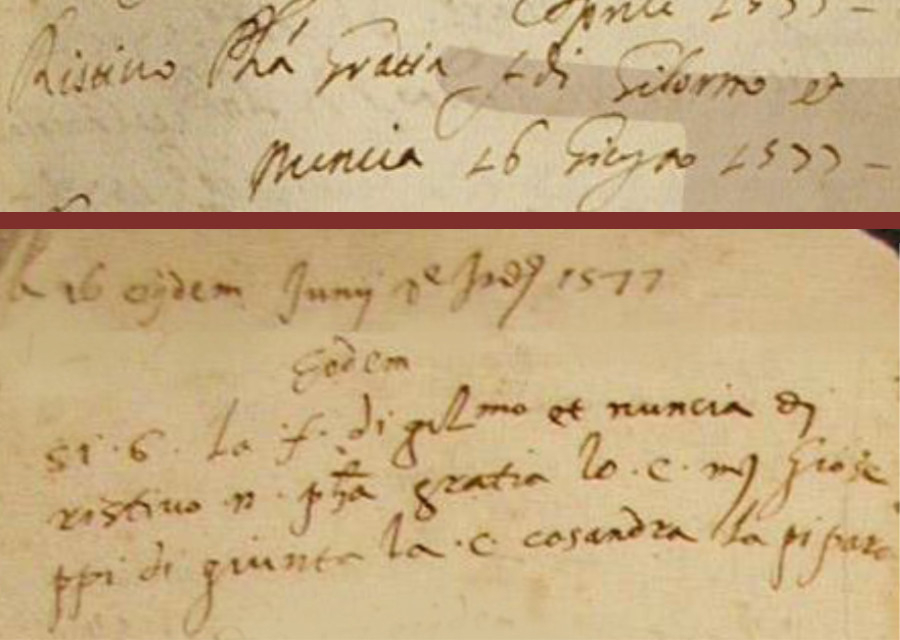 Aprile 1577 -
Ristivo Ph.ª Gratia f. di Gilormo et
Nuncia 16 Giugno 1577 -
16 eiusdem Junij 1577
Eodem
si. b. la f. di gilmo et nuncia di
ristivo n. ph.ª gratia lo. c. mº Giose
ppi di giunta la. c. casandra la pipara